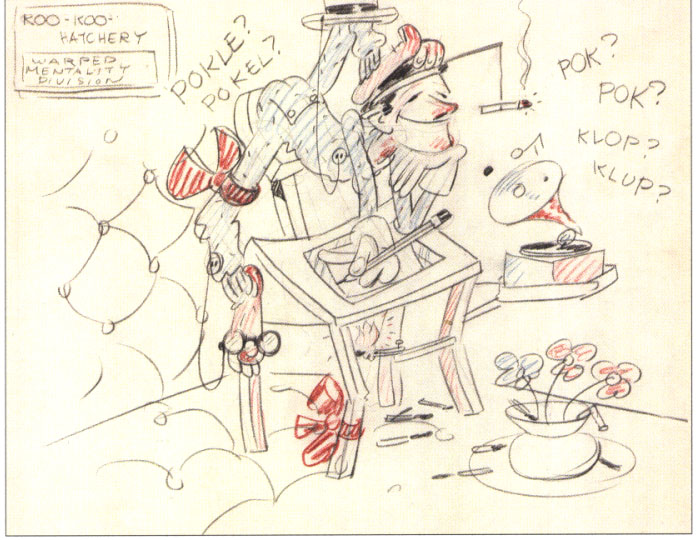 KOO-KOO-
HATCHERY
WARPED
MENTALITY
DIVISION
POKLE?
POKEL?
POK?
POK?
KLOP?
KLUP?